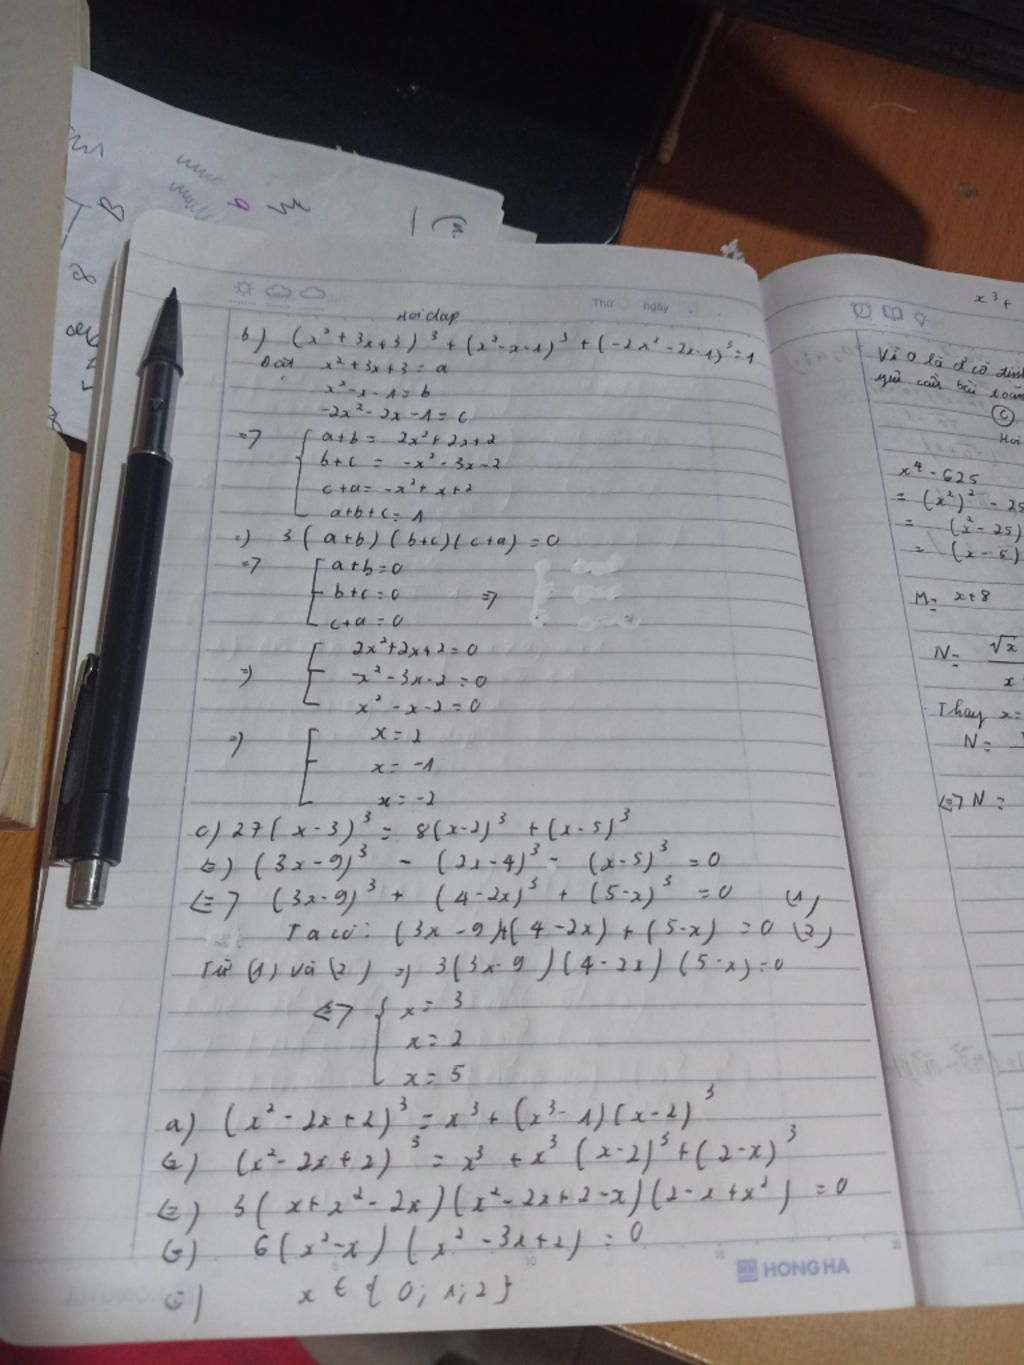 Thứ ngày
Hỏi đáp
b) (x² + 3x + 3)³ + (x² - x - 1)³ + (-2x² - 2x - 1)³ = 1
Đặt x² + 3x + 3 = a
x² - x - 1 = b
-2x² - 2x - 1 = c
=> { a+b = 2x² + 2x + 2
b+c = -x² - 3x - 2
c+a = -x² + x + 2
a+b+c = 1
=> 3(a+b)(b+c)(c+a) = 0
=> [ a+b = 0
b+c = 0 =>
c+a = 0
=> [ 2x² + 2x + 2 = 0
-x² - 3x - 2 = 0
x² - x - 2 = 0
=> [ x = 2
x = -1
x = -2
c) 27(x-3)³ = 8(x-2)³ + (x-5)³
<=> (3x-9)³ - (2x-4)³ - (x-5)³ = 0
<=> (3x-9)³ + (4-2x)³ + (5-x)³ = 0 (1)
Ta có: (3x-9)+(4-2x)+(5-x) = 0 (2)
Từ (1) và (2) => 3(3x-9)(4-2x)(5-x) = 0
<=> { x = 3
x = 2
x = 5
a) (x² - 2x + 2)³ = x³ + (x³ - 1)(x-2)³
<=> (x² - 2x + 2)³ = x³ + x³(x-2)³ + (2-x)³
<=> 3(x + x² - 2x)(x² - 2x + 2 - x)(2 - x + x²) = 0
<=> 6(x² - x)(x² - 3x + 2) = 0
<=> x ∈ {0; 1; 2}
HONG HA
x³ +
Vì O là
yêu cầu bài toán
C
x⁴ - 625
= (x²)² - 25
= (x² - 25)
= (x - 5)
M = x + 8
N = √x
x
Thay x =
N =
<=> N =